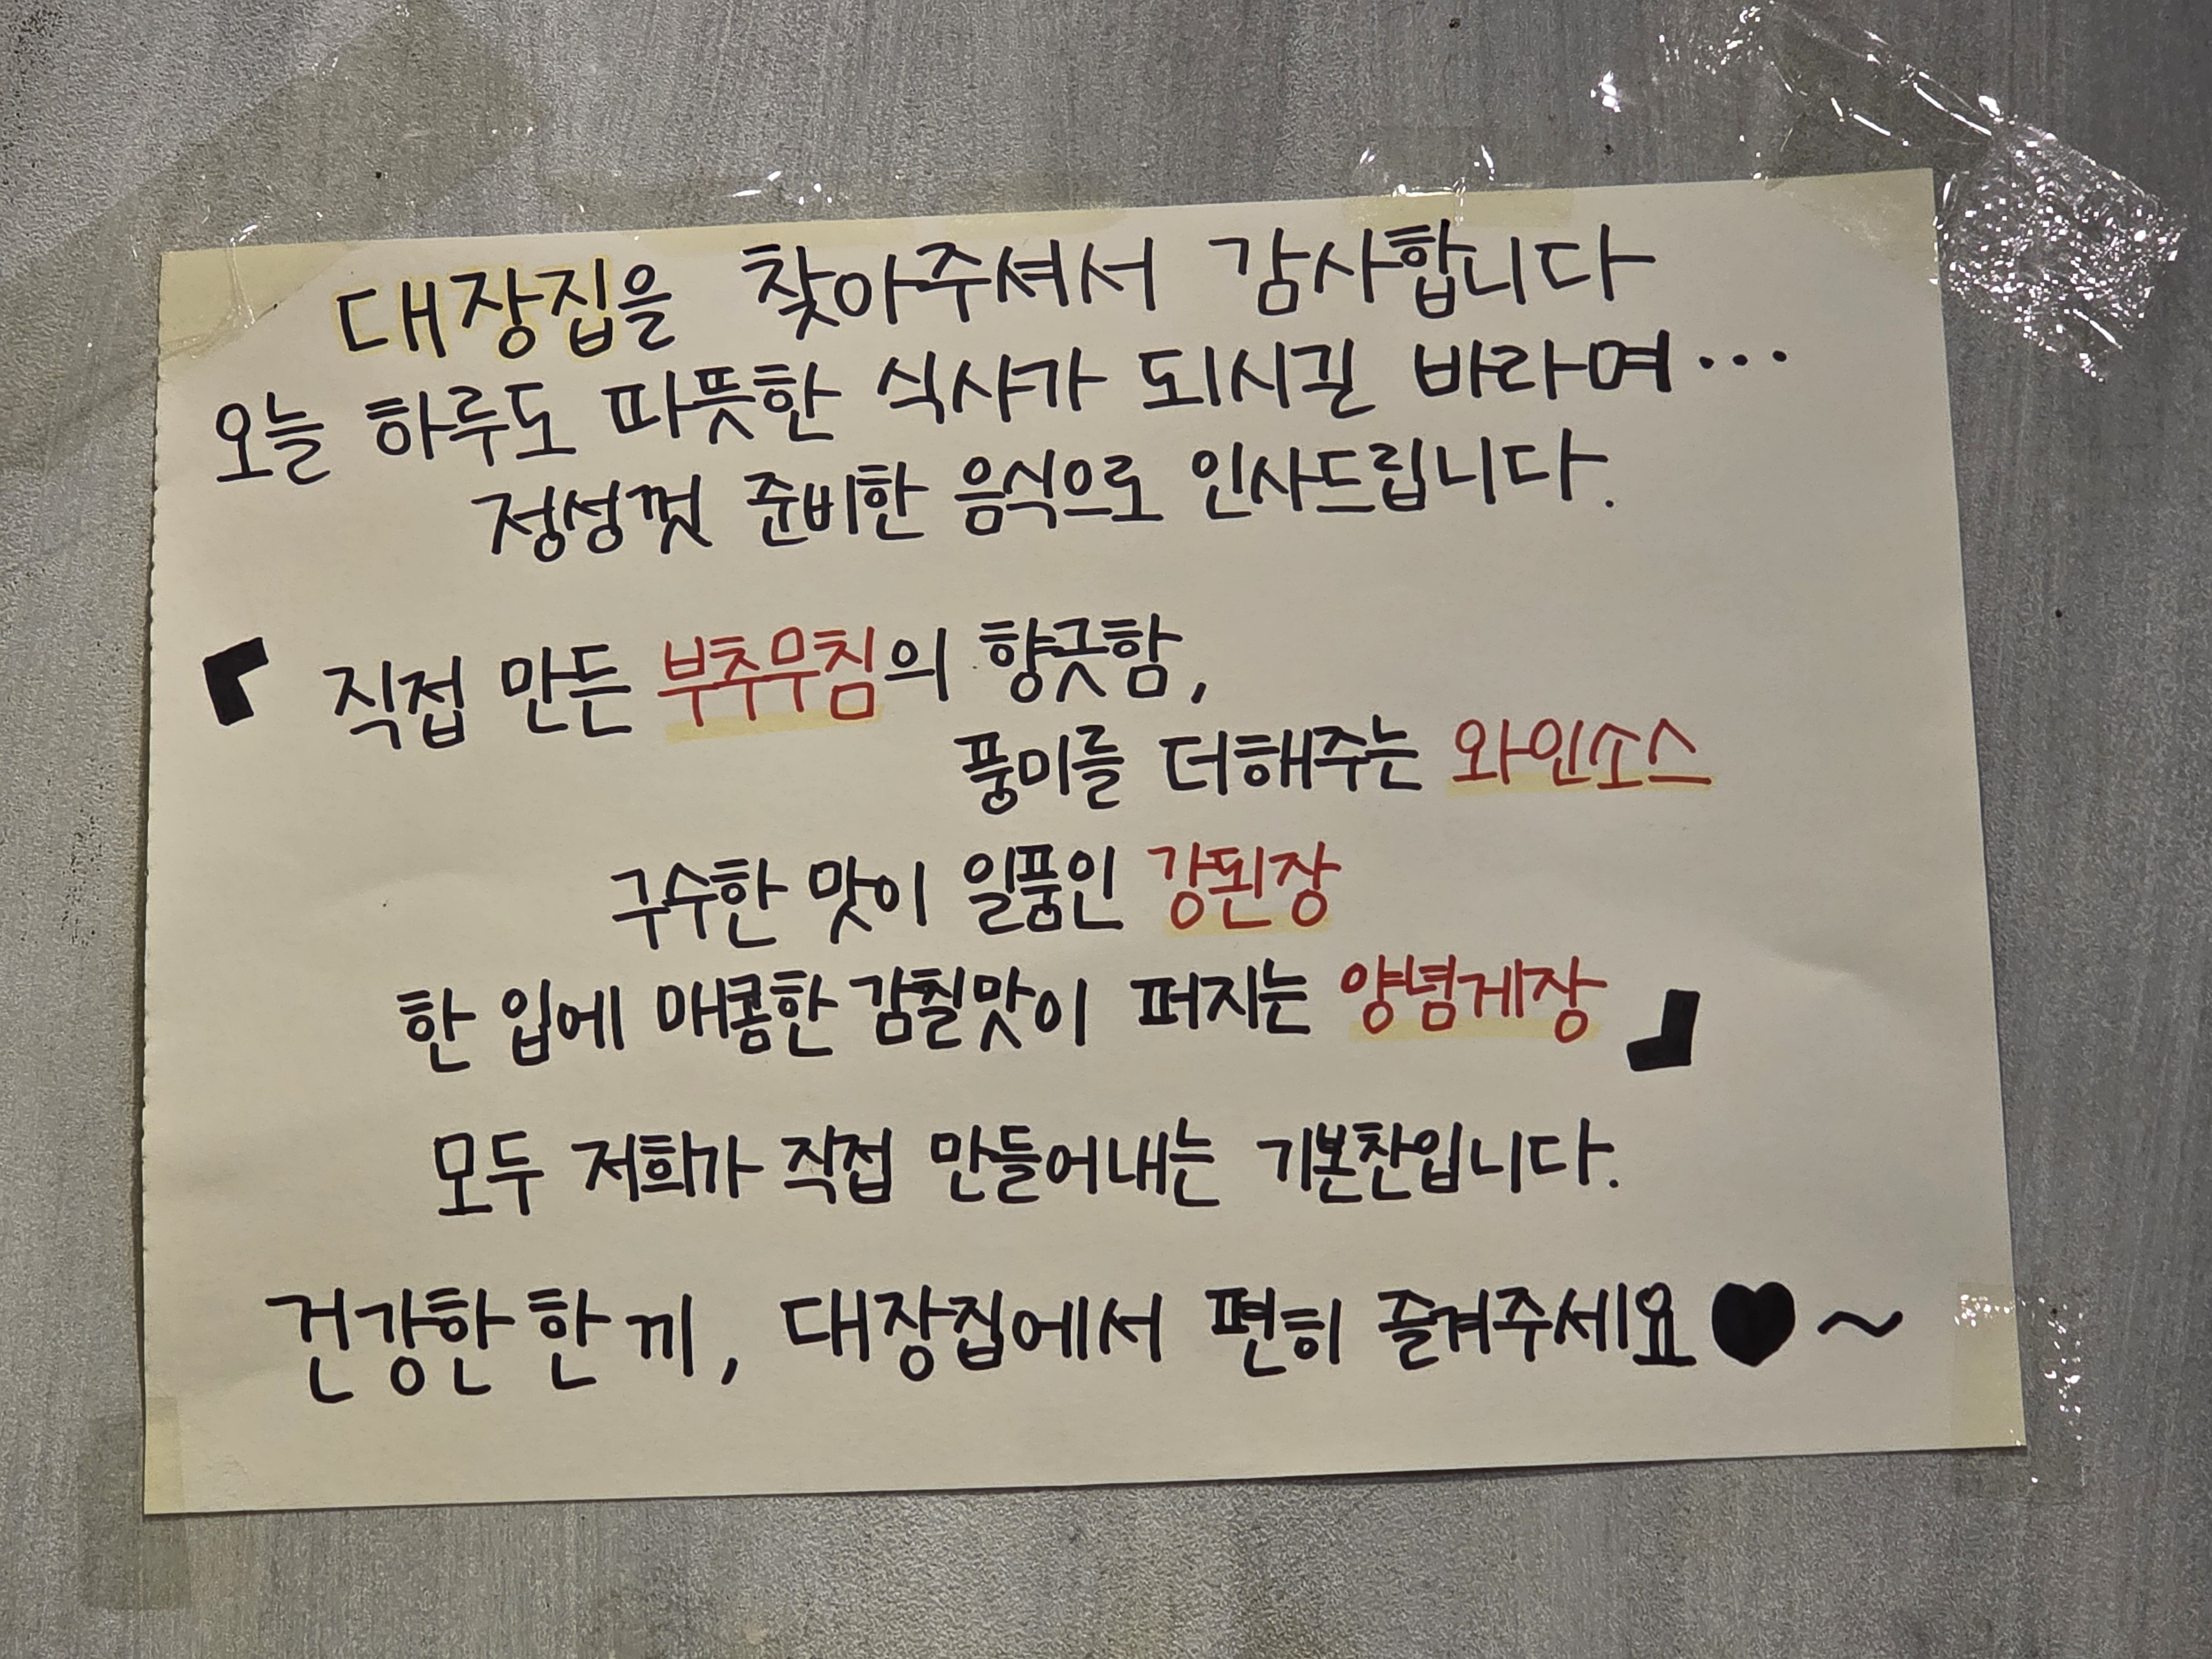 대장집을 찾아주셔서 감사합니다
오늘 하루도 따뜻한 식사가 되시길 바라며...
정성껏 준비한 음식으로 인사드립니다.
『 직접 만든 부추무침의 향긋함,
풍미를 더해주는 와인소스
구수한 맛이 일품인 강된장
한 입에 매콤한 감칠맛이 퍼지는 양념게장 』
모두 저희가 직접 만들어내는 기본찬입니다.
건강한 한끼, 대장집에서 편히 즐겨주세요♥~